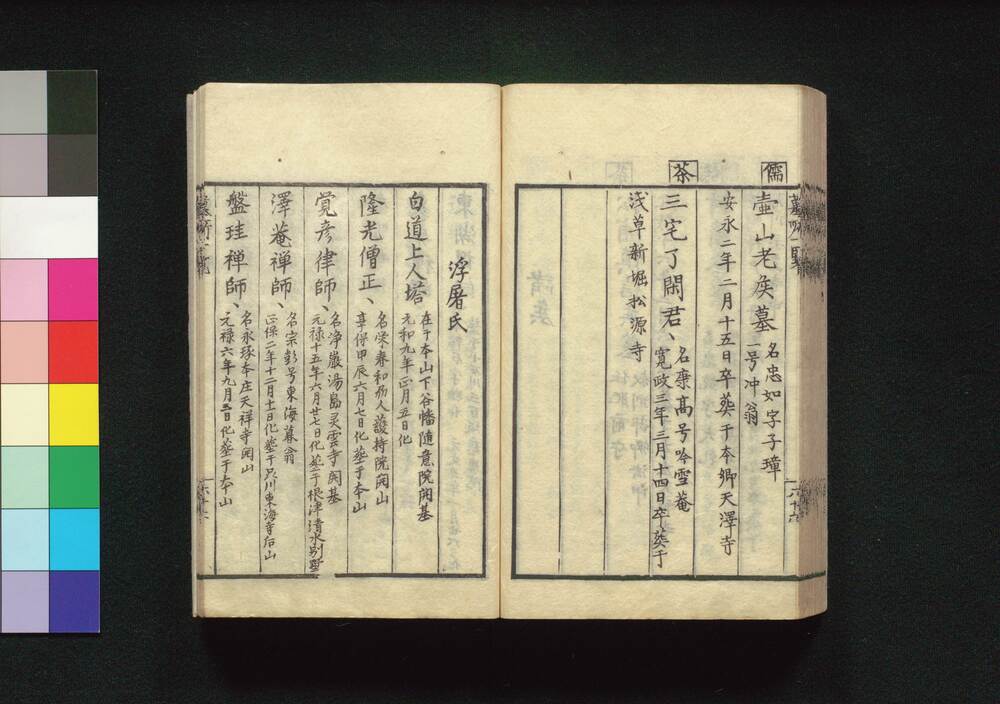 儒
壺山老矦墓
名忠如字子璋
一号冲翁
安永二年二月十五日卒葬于本郷天澤寺
茶
三宅了閑君、
名康高号吟雪菴
寛政三年三月十四日卒葬于
浅草新堀松源寺
浮屠氏
白道上人塔
在于本山下谷幡随意院開基
元和九年正月五日化
隆光僧正、
名栄春和州人護持院開山
享保甲辰六月七日化葬于本山
覚彦律師、
名浄嚴湯島灵雲寺開基
元禄十五年六月廿七日化葬于根津清水別墅
澤菴禅師、
名宗彭号東海暮翁
正保二年十二月十一日化葬于品川東海寺后山
盤珪禅師、
名永琢本庄天祥寺開山
元禄六年九月三日化葬于本山